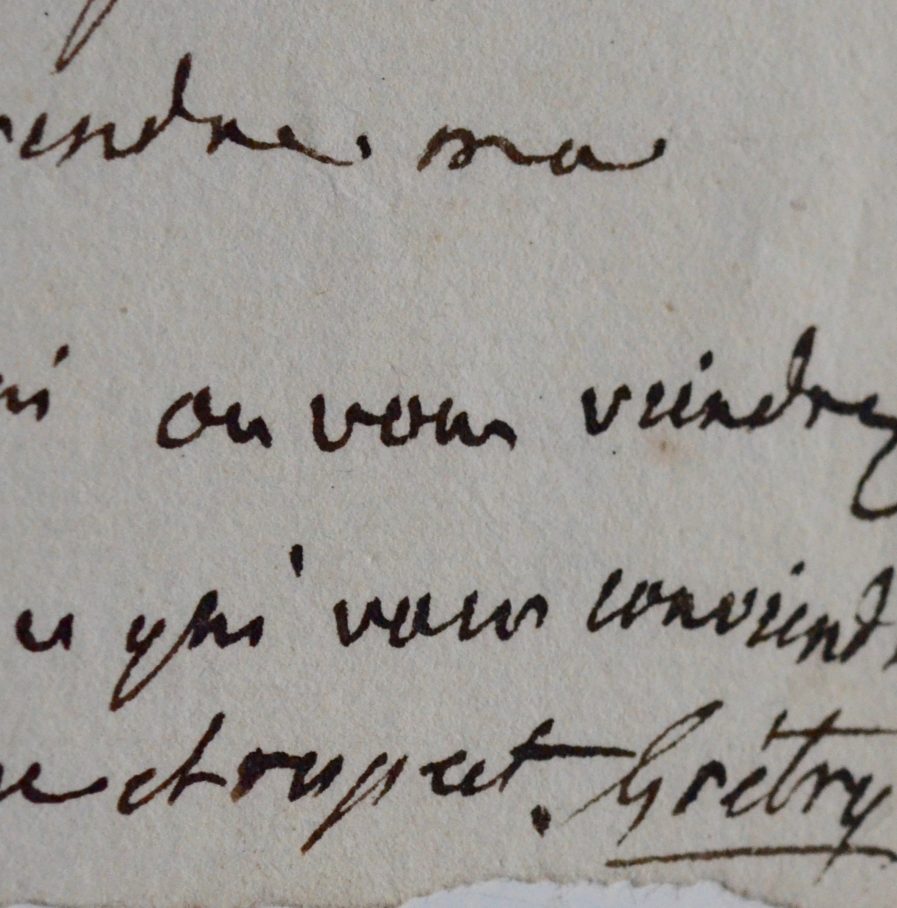 rendre ma
ou vous viendrez
ce qui vous conviend
et respect. Grétry